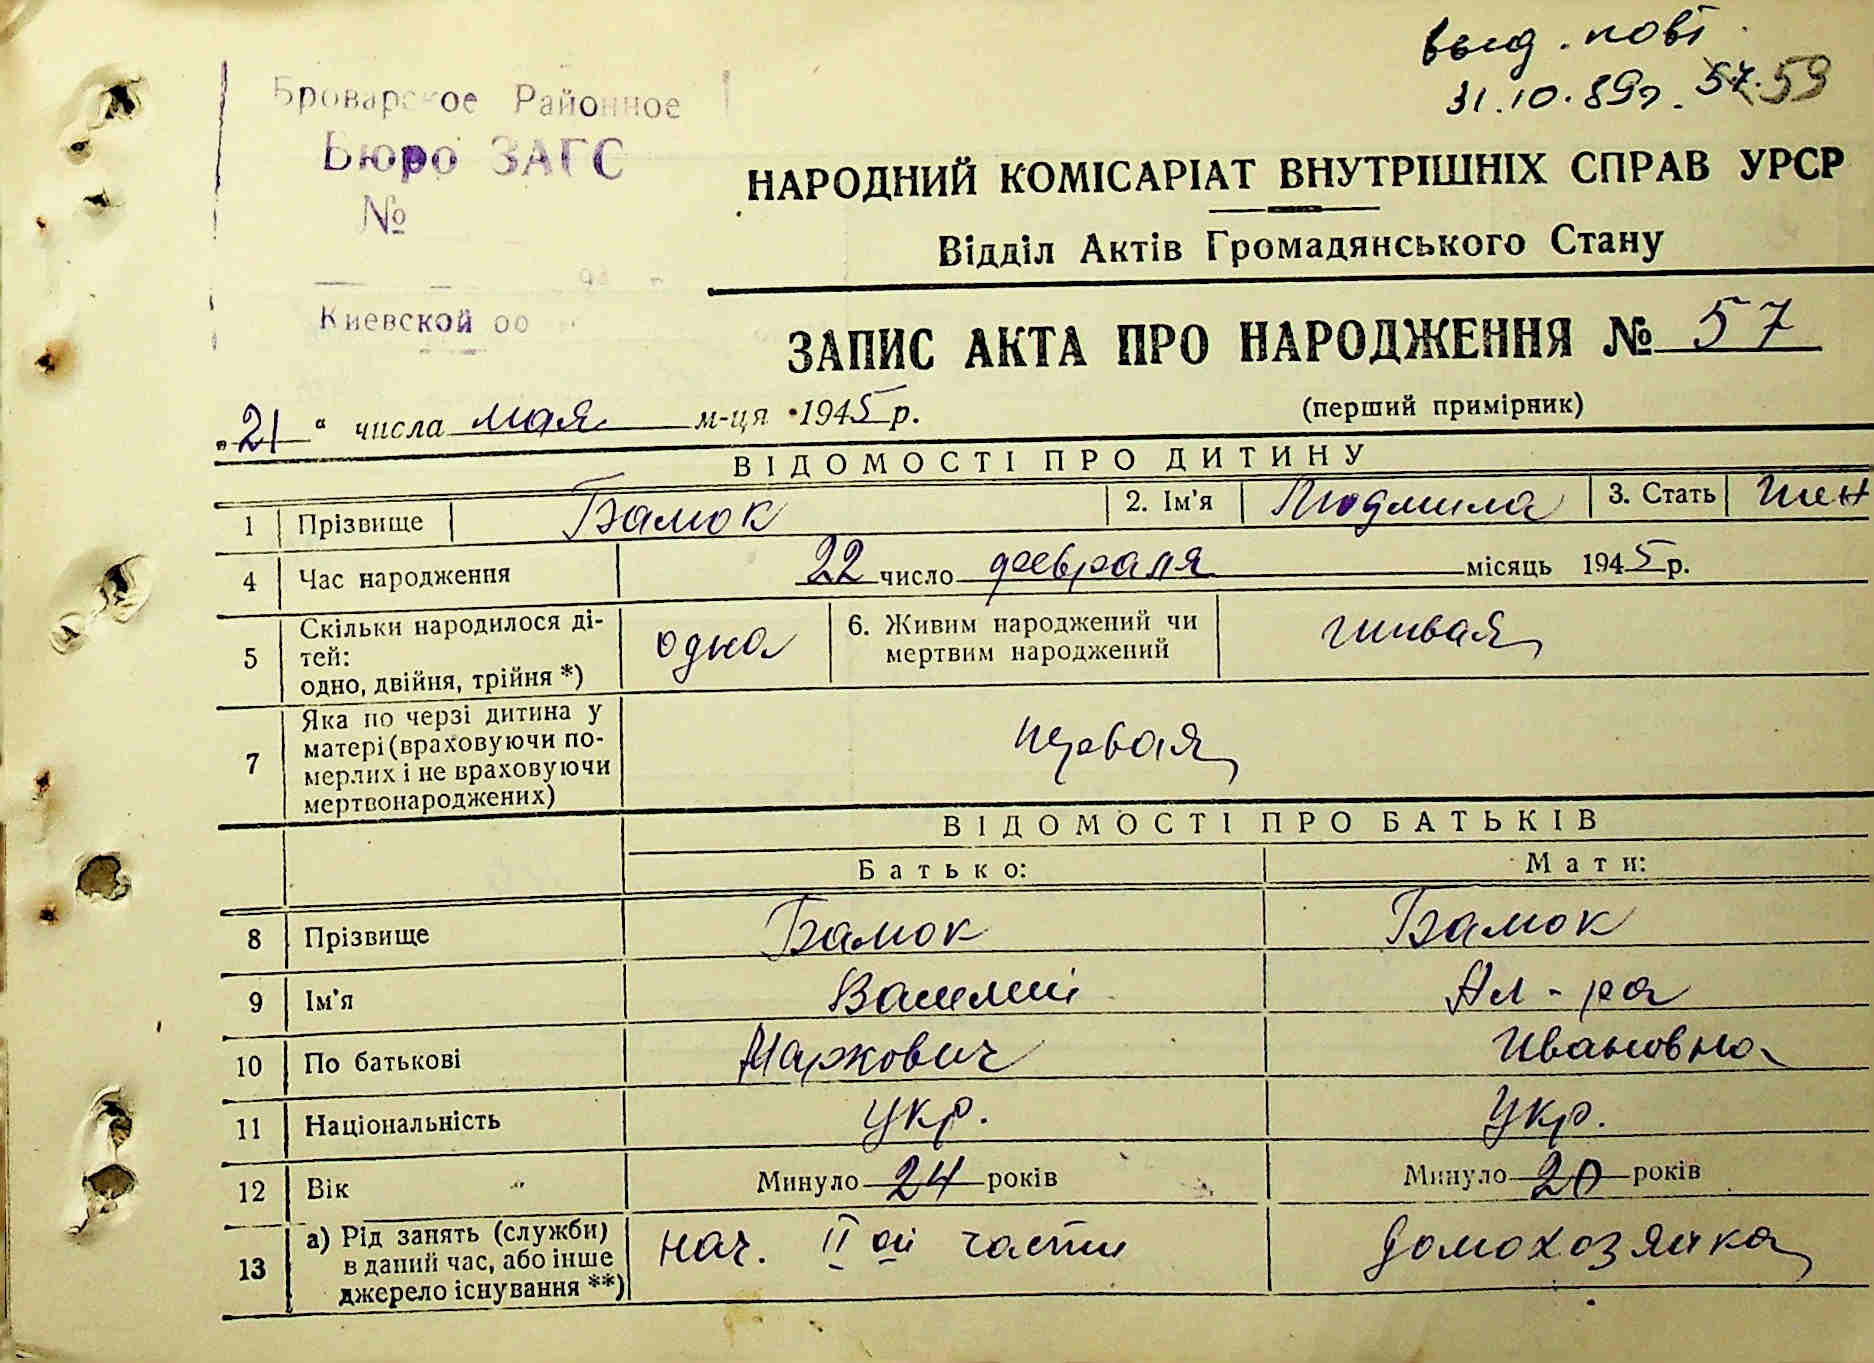 выд. повт.
31.10.89г. 57. 59
Броварское Районное
Бюро ЗАГС
№
Киевской об
НАРОДНИЙ КОМІСАРІАТ ВНУТРІШНІХ СПРАВ УРСР
Відділ Актів Громадянського Стану
ЗАПИС АКТА ПРО НАРОДЖЕННЯ № 57
(перший примірник)
„21“ числа мая м-ця 1945 р.
ВІДОМОСТІ ПРО ДИТИНУ
1 Прізвище Бамок 2. Ім'я Людмила 3. Стать жен
4 Час народження 22 число февраля місяць 1945 р.
5 Скільки народилося ді-
тей:
одно, двійня, трійня *) одна 6. Живим народжений чи
мертвим народжений живая
7 Яка по черзі дитина у
матері (враховуючи по-
мерлих і не враховуючи
мертвонароджених) первая
ВІДОМОСТІ ПРО БАТЬКІВ
Батько: Мати:
8 Прізвище Бамок Бамок
9 Ім'я Василий Ал-ра
10 По батькові Маркович Ивановна
11 Національність Укр. Укр.
12 Вік Минуло 24 років Минуло 20 років
13 а) Рід занять (служби)
в даний час, або інше
джерело існування **) нач. II ой части домохозяйка